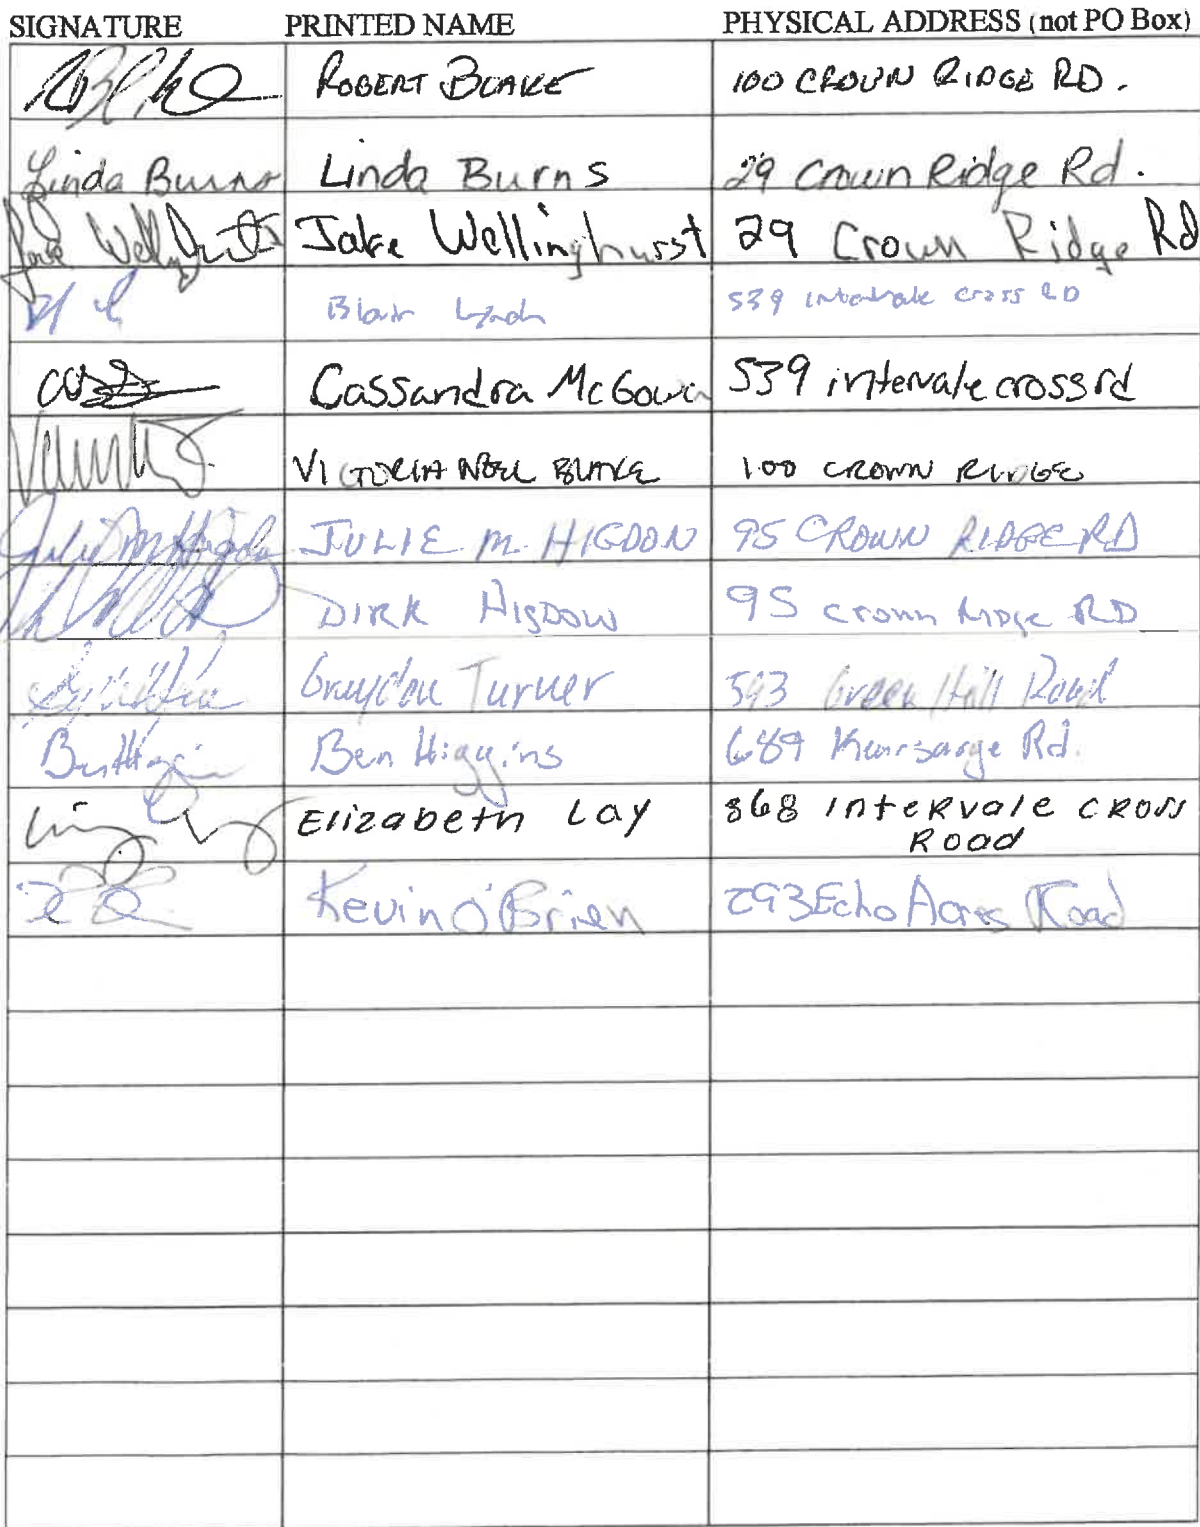 SIGNATURE PRINTED NAME PHYSICAL ADDRESS (not PO Box)
ROBERT BLAKE 100 CROWN RIDGE RD.
Linda Burns Linda Burns 29 Crown Ridge Rd.
Jake Wellinghurst Jake Wellinghurst 29 Crown Ridge Rd
Blair Lynch 539 intervale cross RD
Cassandra McGowa 539 intervale cross rd
VICTORIA NOEL BLAKE 100 CROWN RIDGE
Julie M Higdon JULIE M. HIGDON 95 CROWN RIDGE RD
DIRK HIGDON 95 Crown Ridge RD
Graydon Turner 593 Green Hill Road
Ben Higgins Ben Higgins 689 Kearsarge Rd.
Elizabeth Lay 868 Intervale CROSS
Road
Kevin O'Brien 293 Echo Acres Road